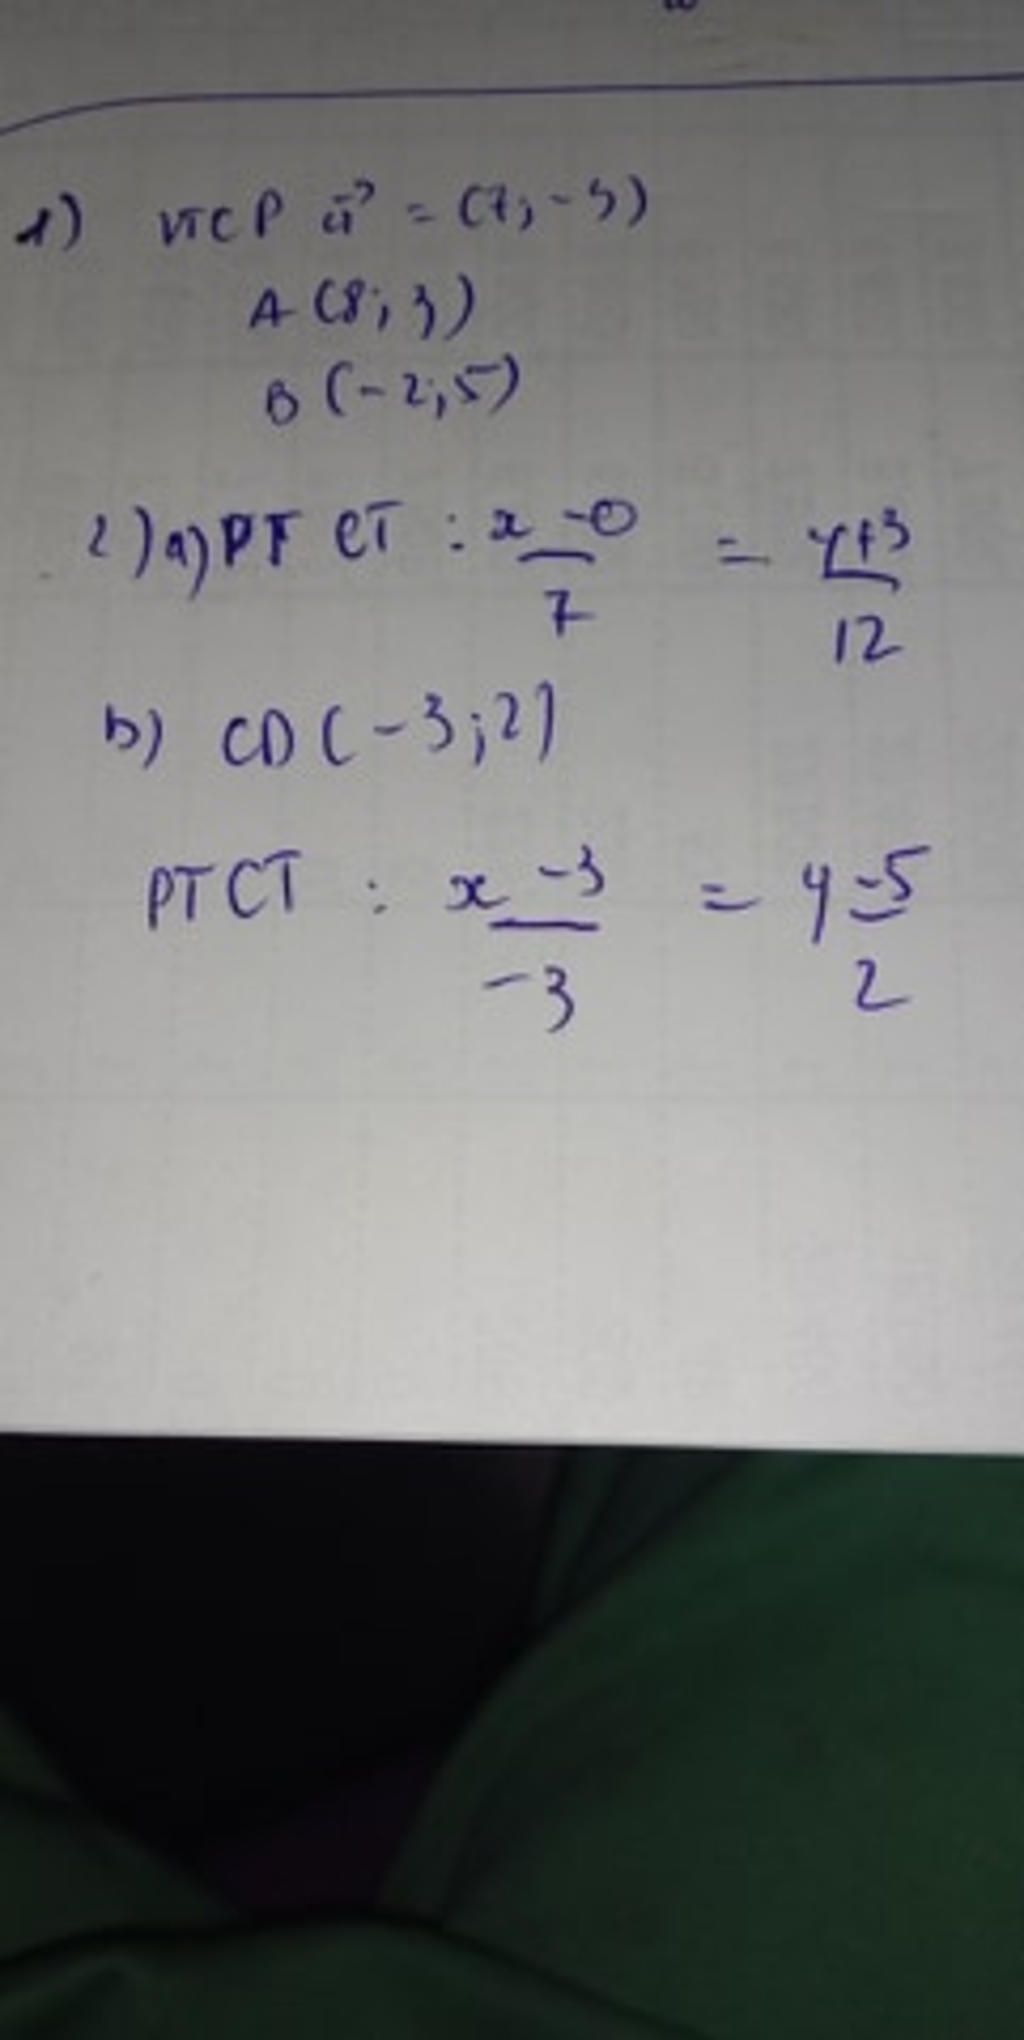 1) VTCP u⃗ = (7; -3)
A (8; 3)
B (-2; 5)
2) a) PT CT : x - 0 / 7 = y + 3 / 12
b) CD (-3; 2)
PTCT : x - 3 / -3 = y - 5 / 2